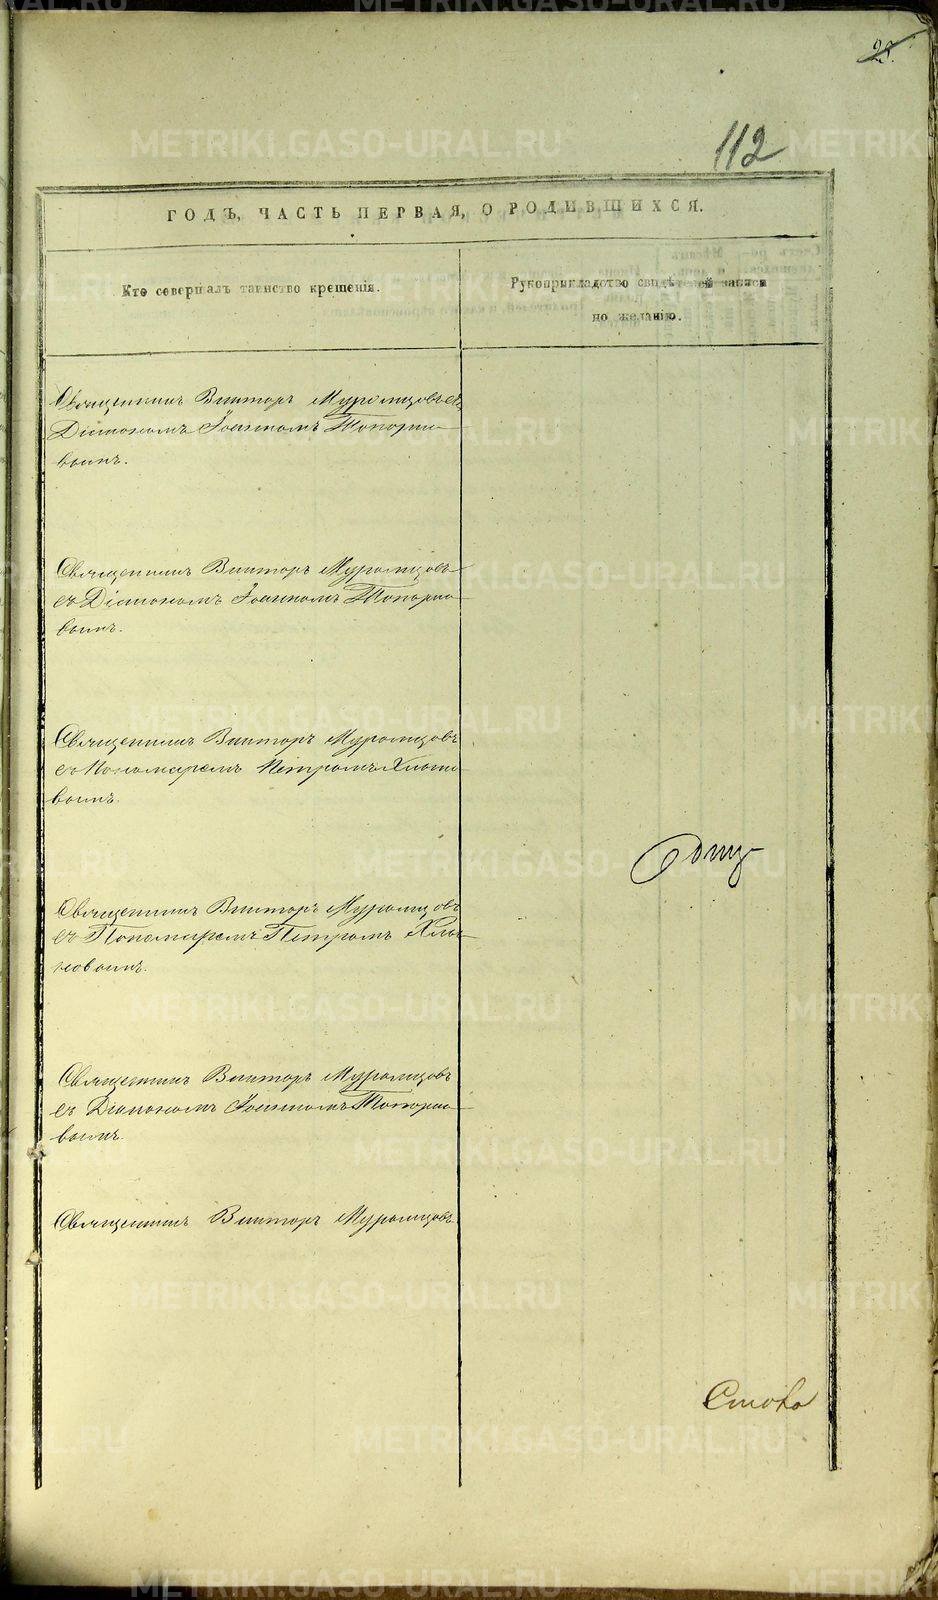 28.
112
ГОДЪ, ЧАСТЬ ПЕРВАЯ, О РОДИВШИХСЯ.
Кто совершалъ таинство крещенія.
Рукоприкладство свидѣтелей записи
по желанію.
Священникъ Викторъ Муромцовъ съ
Діакономъ Іоанномъ Топорко-
вымъ.
Священникъ Викторъ Муромцовъ
съ Діакономъ Іоанномъ Топорко-
вымъ.
Священникъ Викторъ Муромцовъ
съ Пономаремъ Петромъ Хлыно-
вымъ.
Священникъ Викторъ Муромцовъ
съ Пономаремъ Петромъ Хлы-
новымъ.
Священникъ Викторъ Муромцовъ
съ Діакономъ Іоанномъ Топорко-
вымъ.
Священникъ Викторъ Муромцовъ.
METRIKI.GASO-URAL.RU